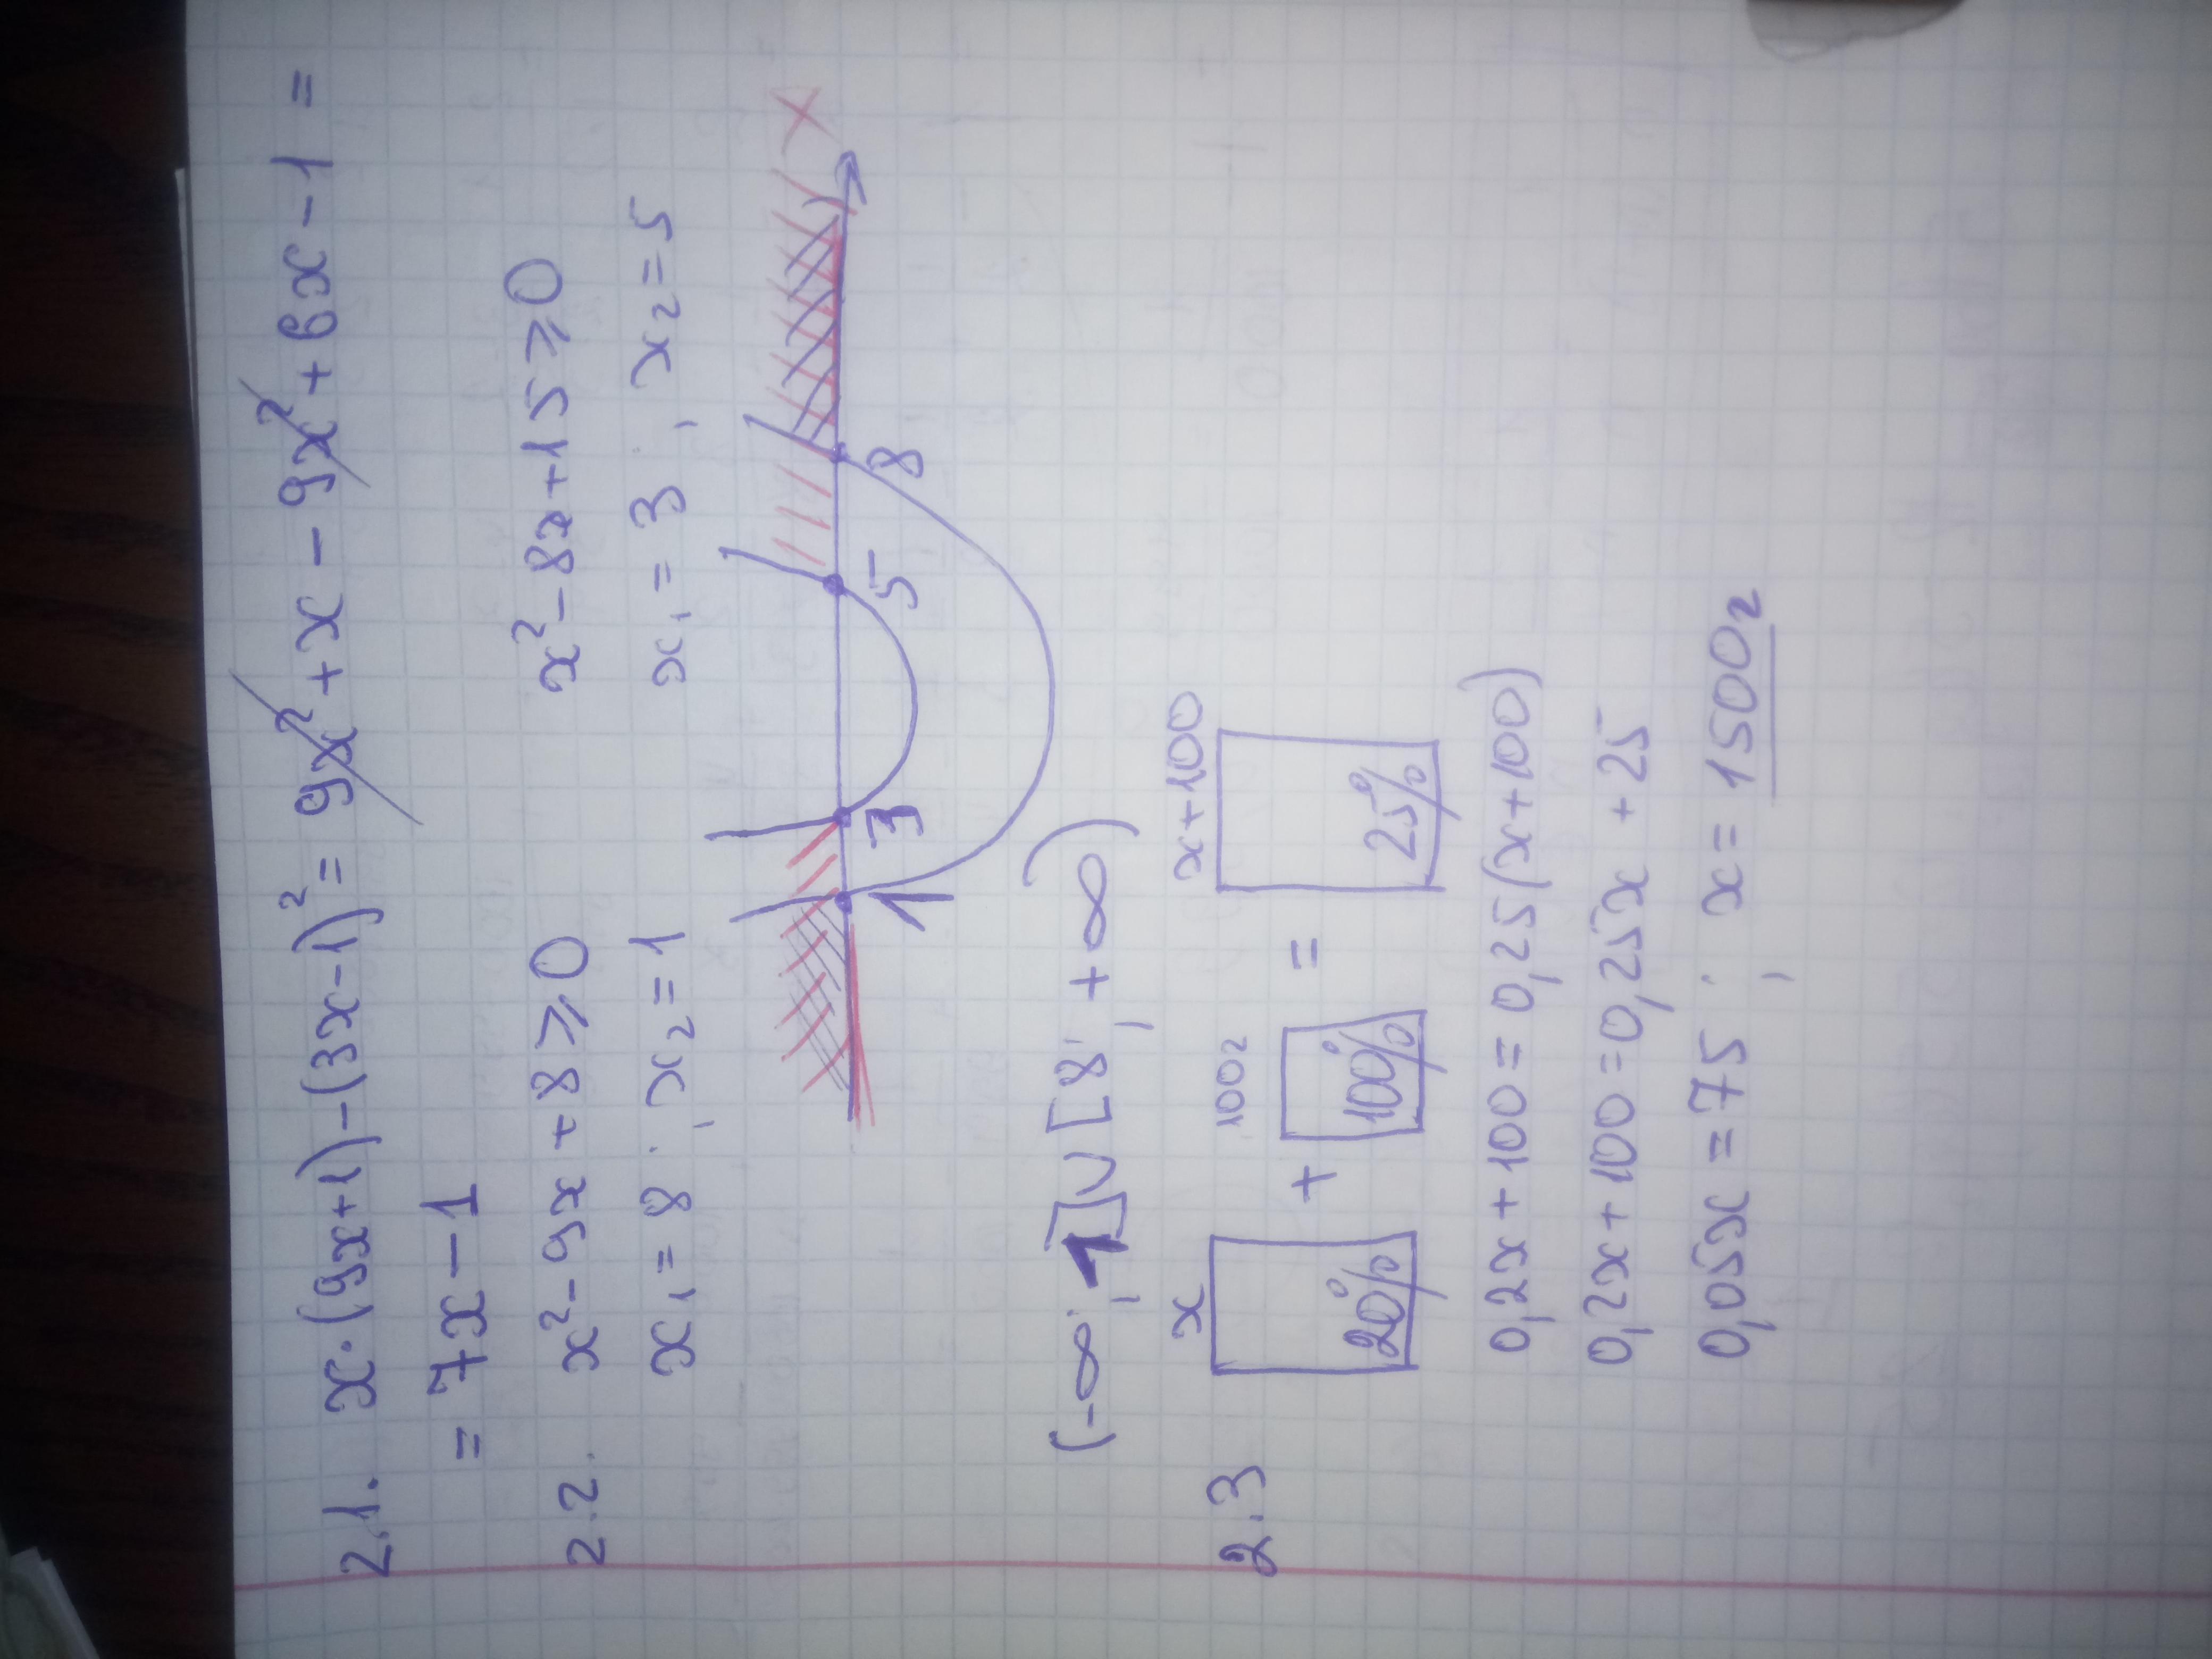 2.1. x·(9x+1)-(3x-1)²= 9x²+x-9x²+6x-1=
=7x-1
2.2. x²-9x+8≥0 x²-8x+15≥0
x₁=8; x₂=1 x₁=3; x₂=5
x
1 3 5 8
(-∞;1]∪[8;+∞)
2.3 x 100г x+100
20% + 100% = 25%
0,2x+100=0,25(x+100)
0,2x+100=0,25x+25
0,05x=75; x=1500г